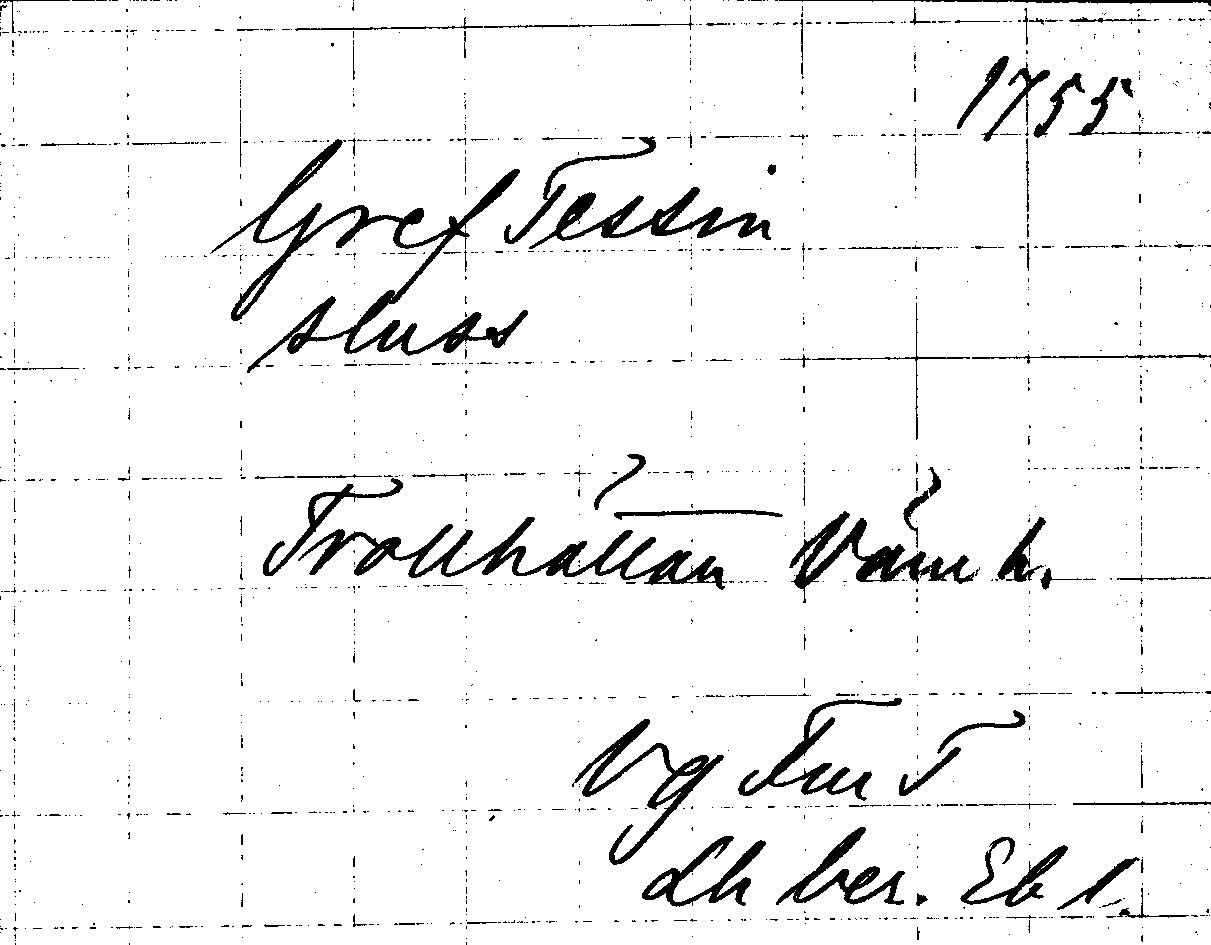 1755
Gref Tessin
sluss
Trollhättan Väne h.
Vg Fm T
Lh ber. Eb 1.